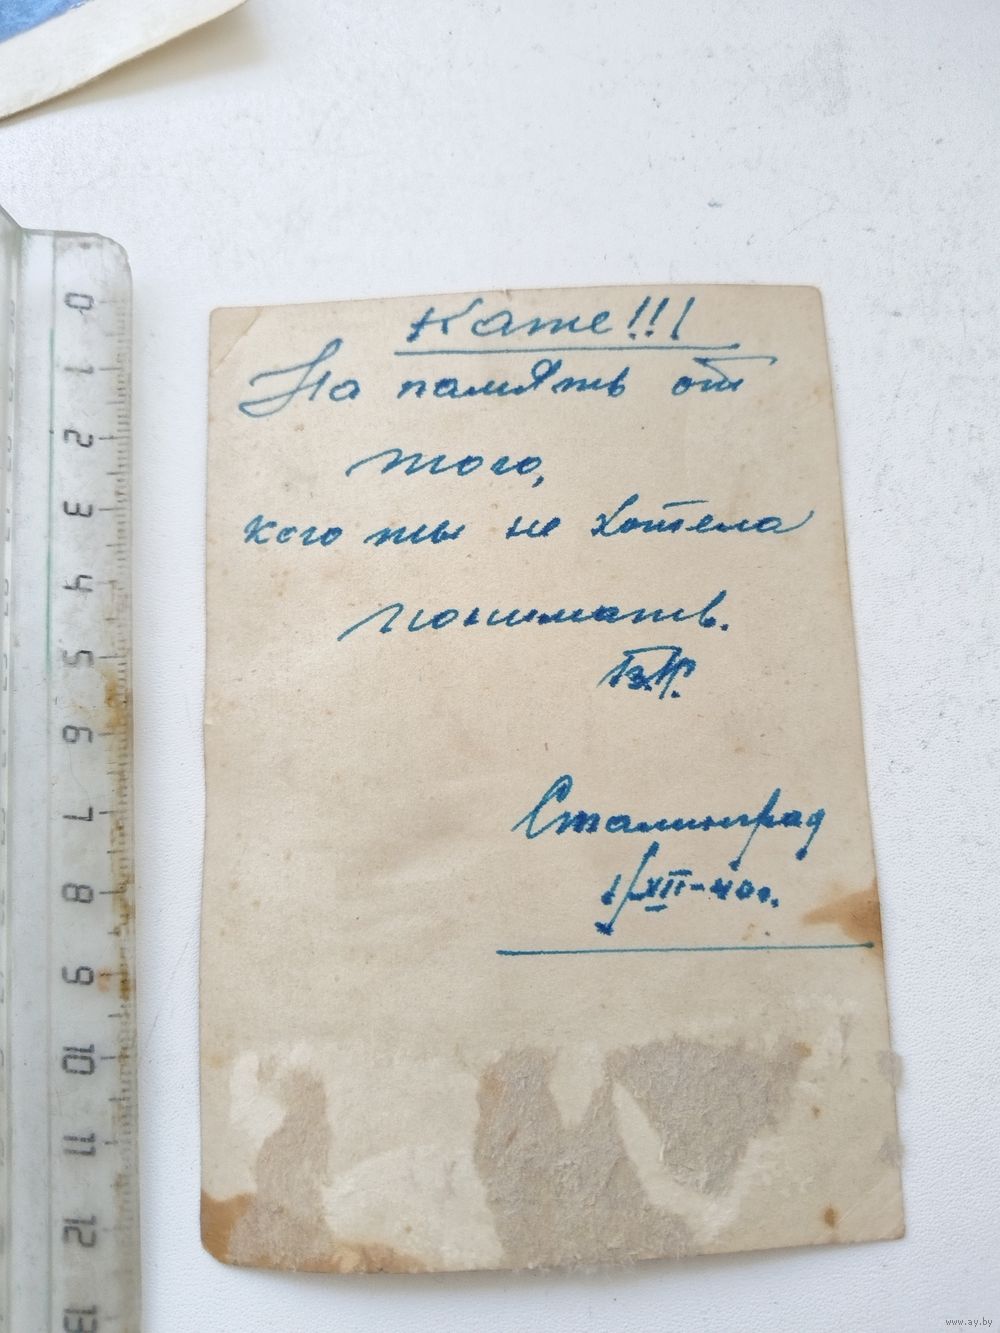 Кате!!!
На память от
того,
кого ты не хотела
понимать.
Сталинград
1/XII-40г.
0 1 2 3 4 5 6 7 8 9 10 11 12 13
www.ay.by